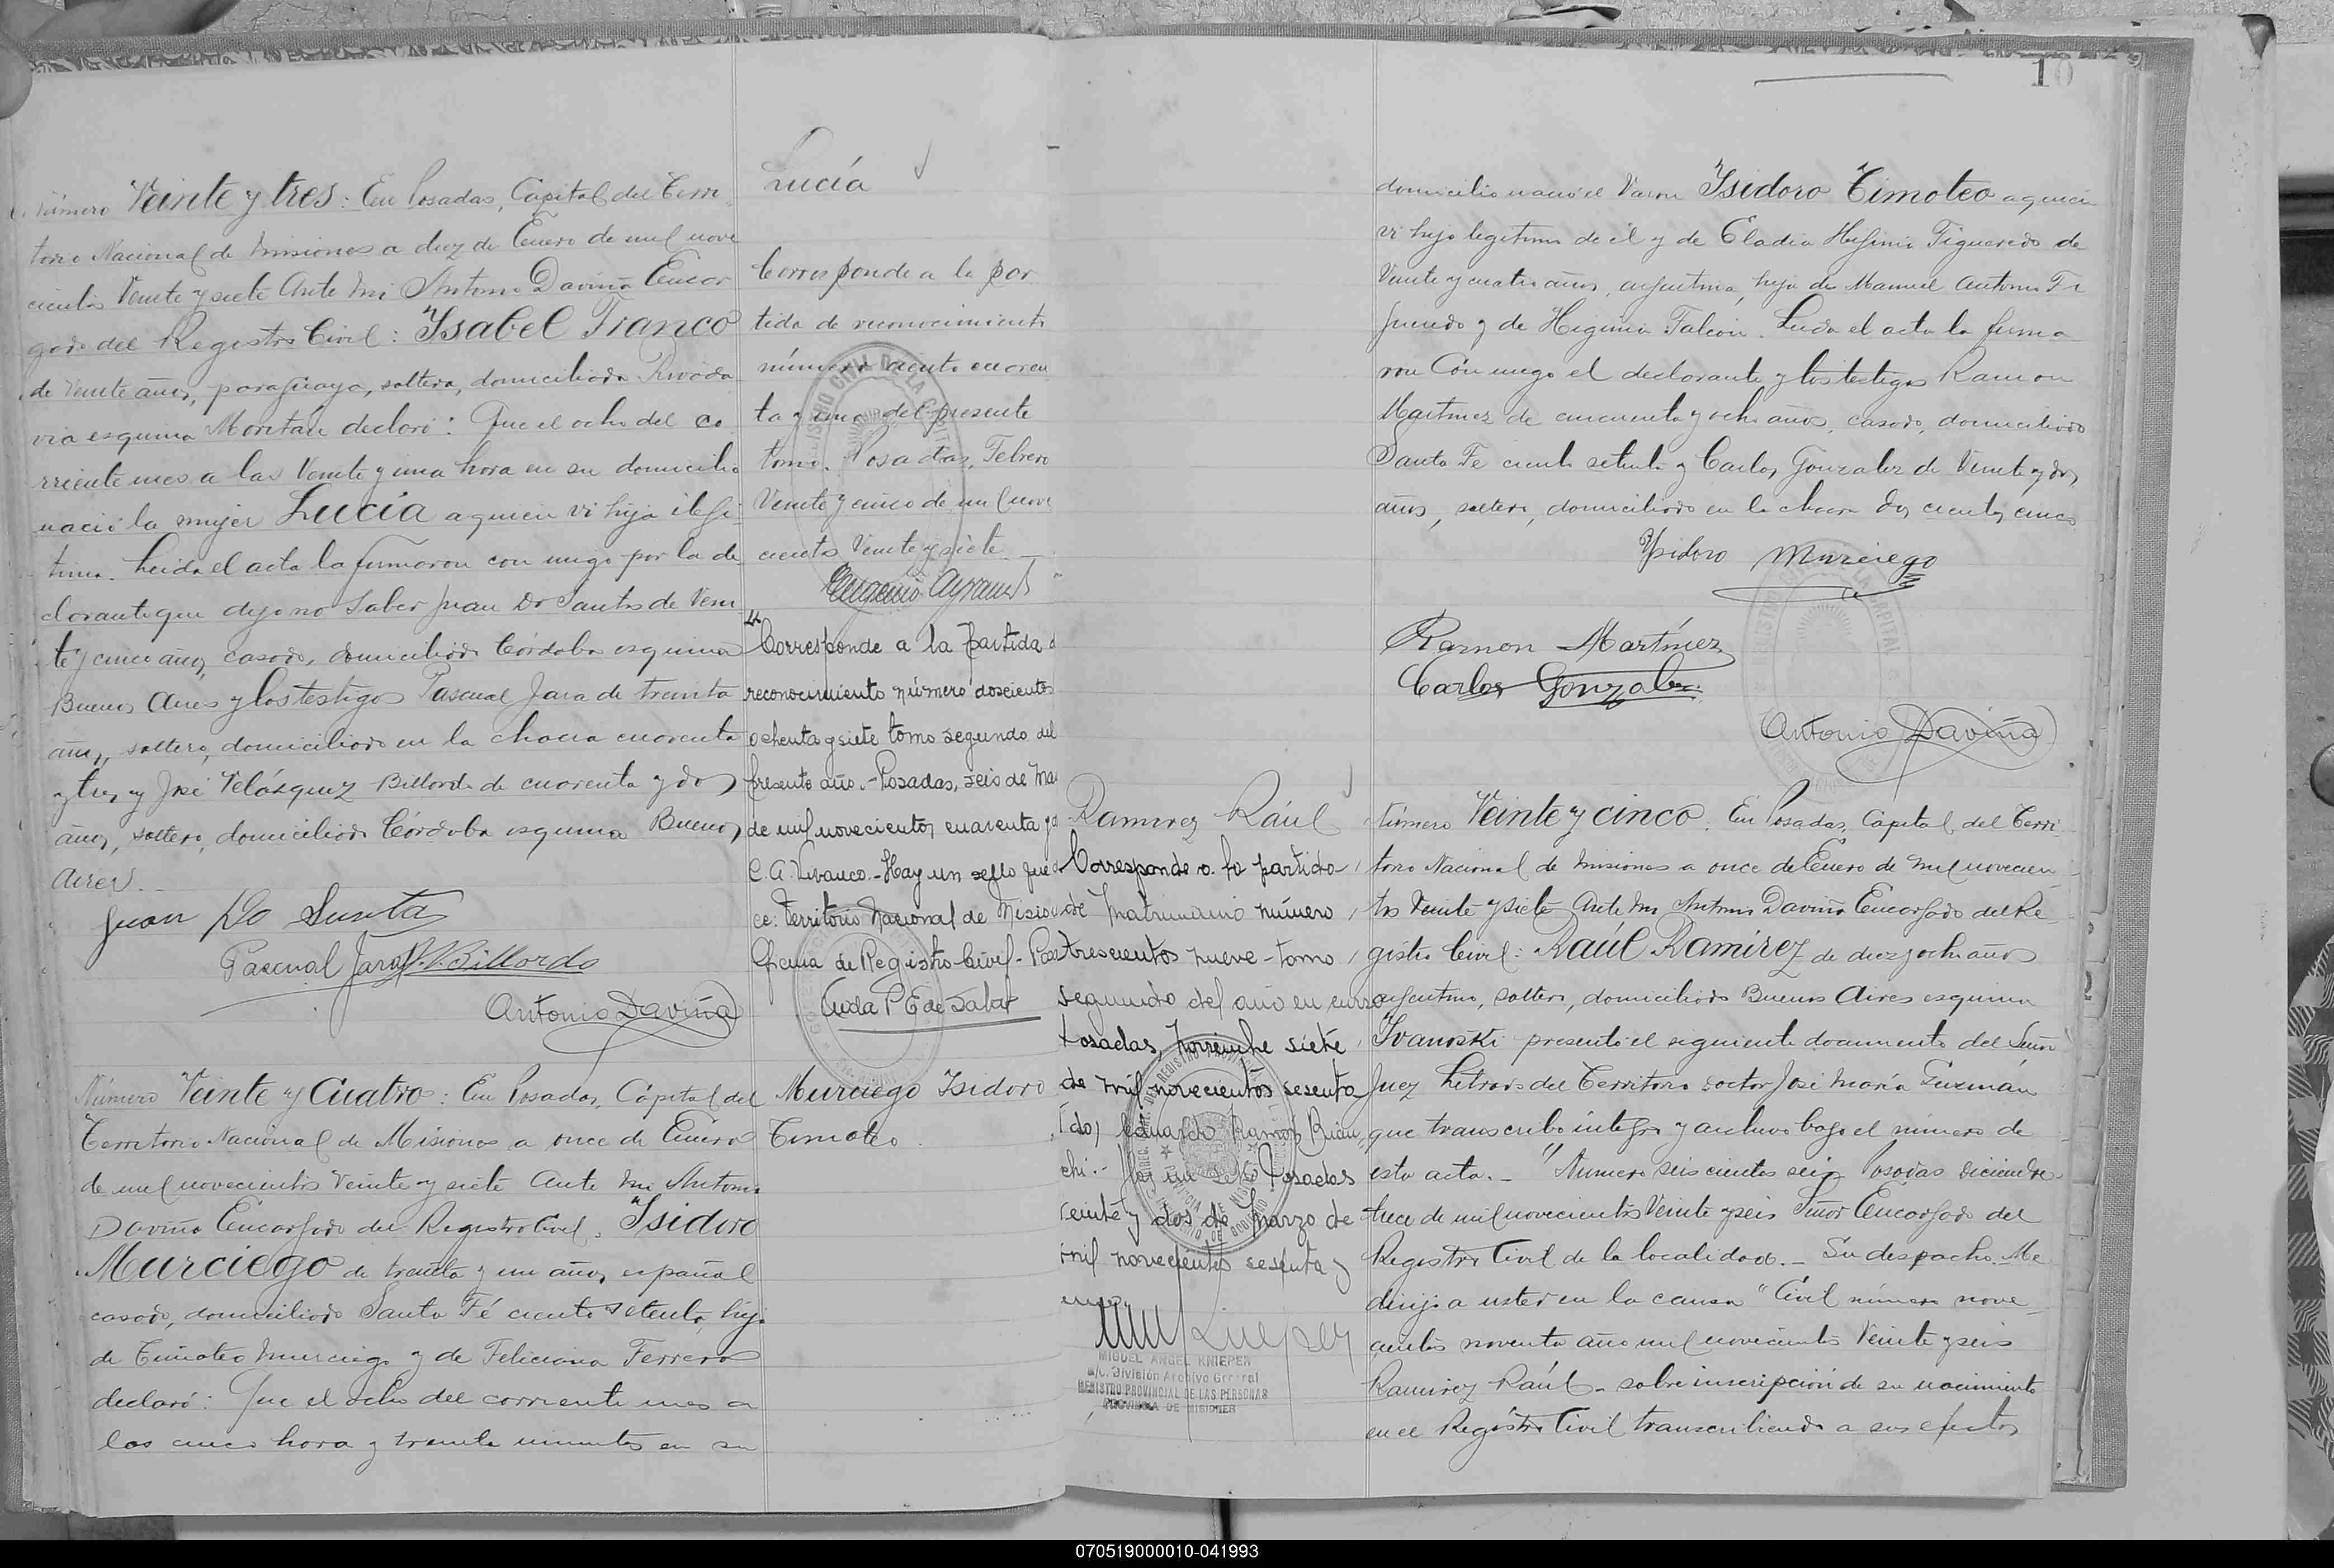 Número Veinte y tres: En Posadas, Capital del Terri
torio Nacional de Misiones a diez de Enero de mil nove
cientos Veinte y siete Ante mi Antonio Daviña Encar
gado del Registro Civil: Ysabel Franco
de veinte años, paraguaya, soltera, domiciliada Rivada
via esquina Moritán declaró: Que el ocho del co
rriente mes a las Veinte y una hora en su domicilio
nació la mujer Lucía a quien vi hija ilegi
tima. Leida el acta la firmaron con migo por la de
clarante que dijo no saber Juan Do Santos de Vein
te y cinco años, casado, domiciliado Córdoba esquina
Buenos Aires y los testigos Pascual Jara de treinta
años, soltero, domiciliado en la chacra cuarenta
y tres y José Velásquez Billordo de cuarenta y dos
años, soltero, domiciliado Córdoba esquina Buenos
Aires.
Juan Do Santa
Pascual Jara J. V. Billordo
Antonio Daviña
Lucía
Corresponde a la par
tida de reconocimiento
número ciento cuaren
ta y uno del presente
tomo. Posadas, Febrero
Veinte y cinco de mil nove
cientos Veinte y siete
Corresponde a la partida d
reconocimiento número doscientos
ochenta y siete tomo segundo del
presente año.- Posadas, seis de Ma
de mil novecientos cuarenta y
C. A. Vivanco.- Hay un sello que d
ce: Territorio Nacional de Mision
Oficina de Registro Civil - Pos
Número Veinte y Cuatro: En Posadas, Capital del
Territorio Nacional de Misiones a once de Enero
de mil novecientos Veinte y siete Ante mi Antonio
Daviña Encargado del Registro Civil. Isidoro
Murciego de treinta y un años, español
casado, domiciliado Santa Fé ciento setenta, hijo
de Timoteo Murciego y de Feliciana Ferrero
declaró: Que el ocho del corriente mes a
las cinco hora y treinta minutos en su
Murciego Isidoro
Timoteo.
10
domicilio nació el Varon Isidoro Timoteo a quien
vi hijo legitimo de él y de Eladia Higinia Figueredo de
Veinte y cuatro años, argentina, hija de Manuel Antonio Fi
gueredo y de Higinia Falcón. Leida el acta la firma
ron Con migo el declarante y los testigos Ramon
Martinez de cincuenta y ocho años, casado, domiciliado
Santa Fe ciento setenta y Carlos Gonzalez de Veinte y dos
años, soltero, domiciliado en la chacra dos cientos cinco
Ysidoro Murciego
Ramon Martínez
Carlos Gonzalez
Antonio Daviña
Ramirez Raúl
Corresponde a la partida
de Matrimonio número
trescientos nueve - tomo
segundo del año en curso
Posadas, Noviembre siete
de mil novecientos sesenta
Fdo) Eduardo Ramos Bian
chi.- Hay un sello Posadas
veinte y dos de Marzo de
mil novecientos sesenta y
MIGUEL ANGEL KNIEPER
a/c. División Archivo General
REGISTRO PROVINCIAL DE LAS PERSONAS
PROVINCIA DE MISIONES
Número Veinte y cinco. En Posadas, Capital del Terri
torio Nacional de Misiones a once de Enero de mil novecien
tos Veinte y siete Ante mi Antonio Daviña Encargado del Re
gistro Civil: Raúl Ramírez de diez y ocho años
argentino, soltero, domiciliado Buenos Aires esquina
Ivanoski presentó el siguiente documento del Señor
Juez Letrado del Territorio doctor José María Guzmán
que transcribo íntegro y archivo bajo el número de
esta acta.- "Número seis cientos seis Posadas Diciembre
trece de mil novecientos Veinte y seis Señor Encargado del
Registro Civil de la localidad.- Su despacho. Me
dirijo a usted en la causa "Civil número nove
cientos noventa año mil novecientos Veinte y seis
Ramirez Raúl - sobre inscripción de su nacimiento
en el Registro Civil transcribiendo a sus efectos
070519000010-041993